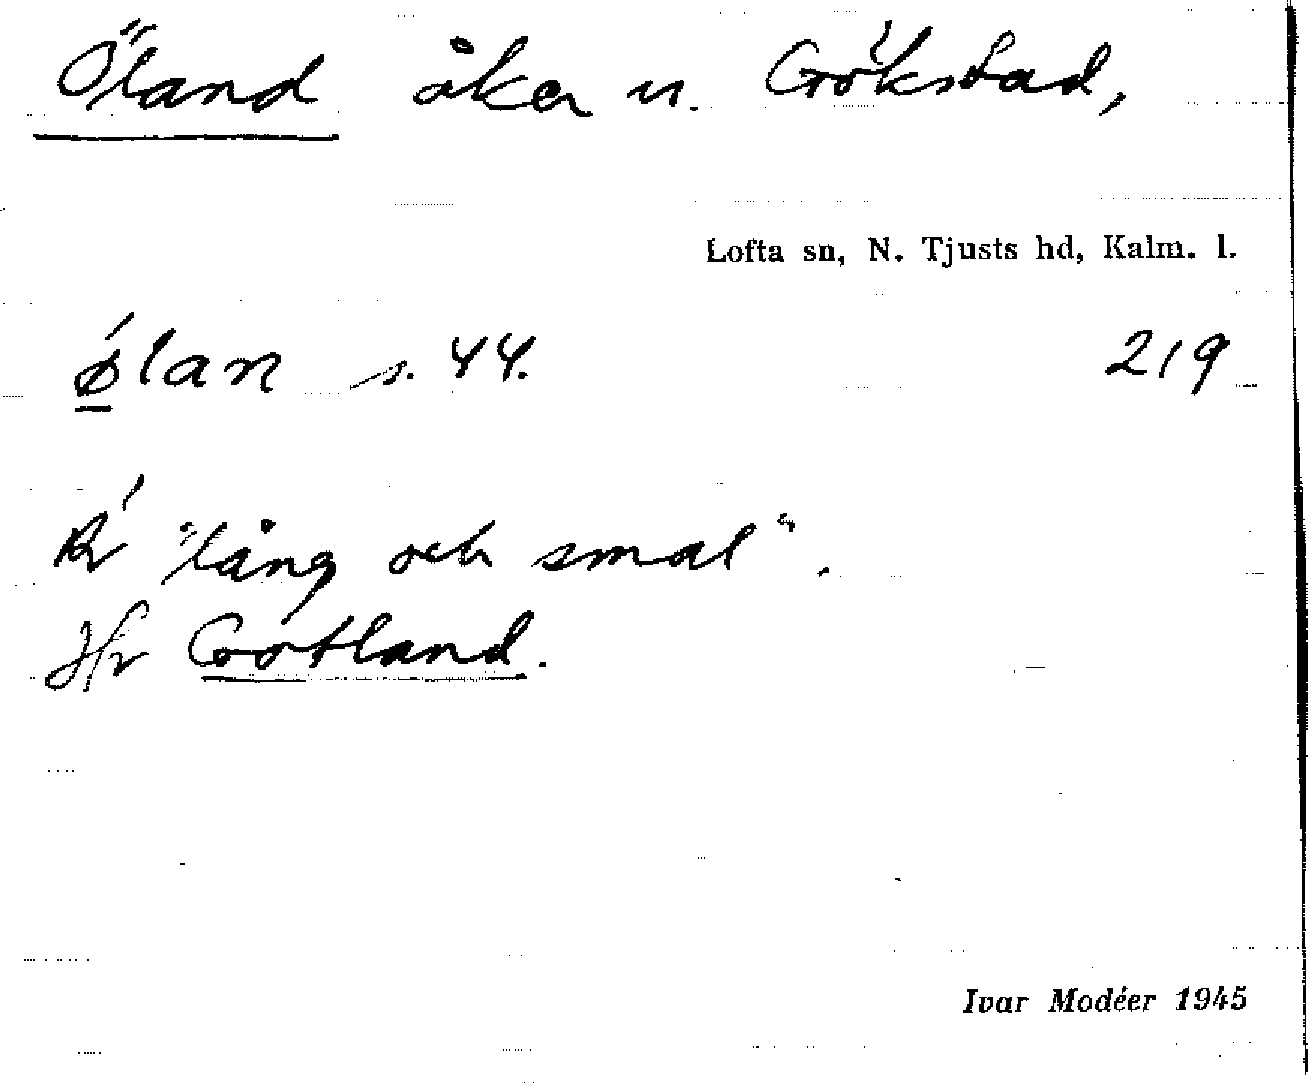 Öland åker u. Gökstad,
Lofta sn, N. Tjusts hd, Kalm. l.
ǿlan s. 44. 219
Är "lång och smal".
Jfr Gotland.
Ivar Modéer 1945